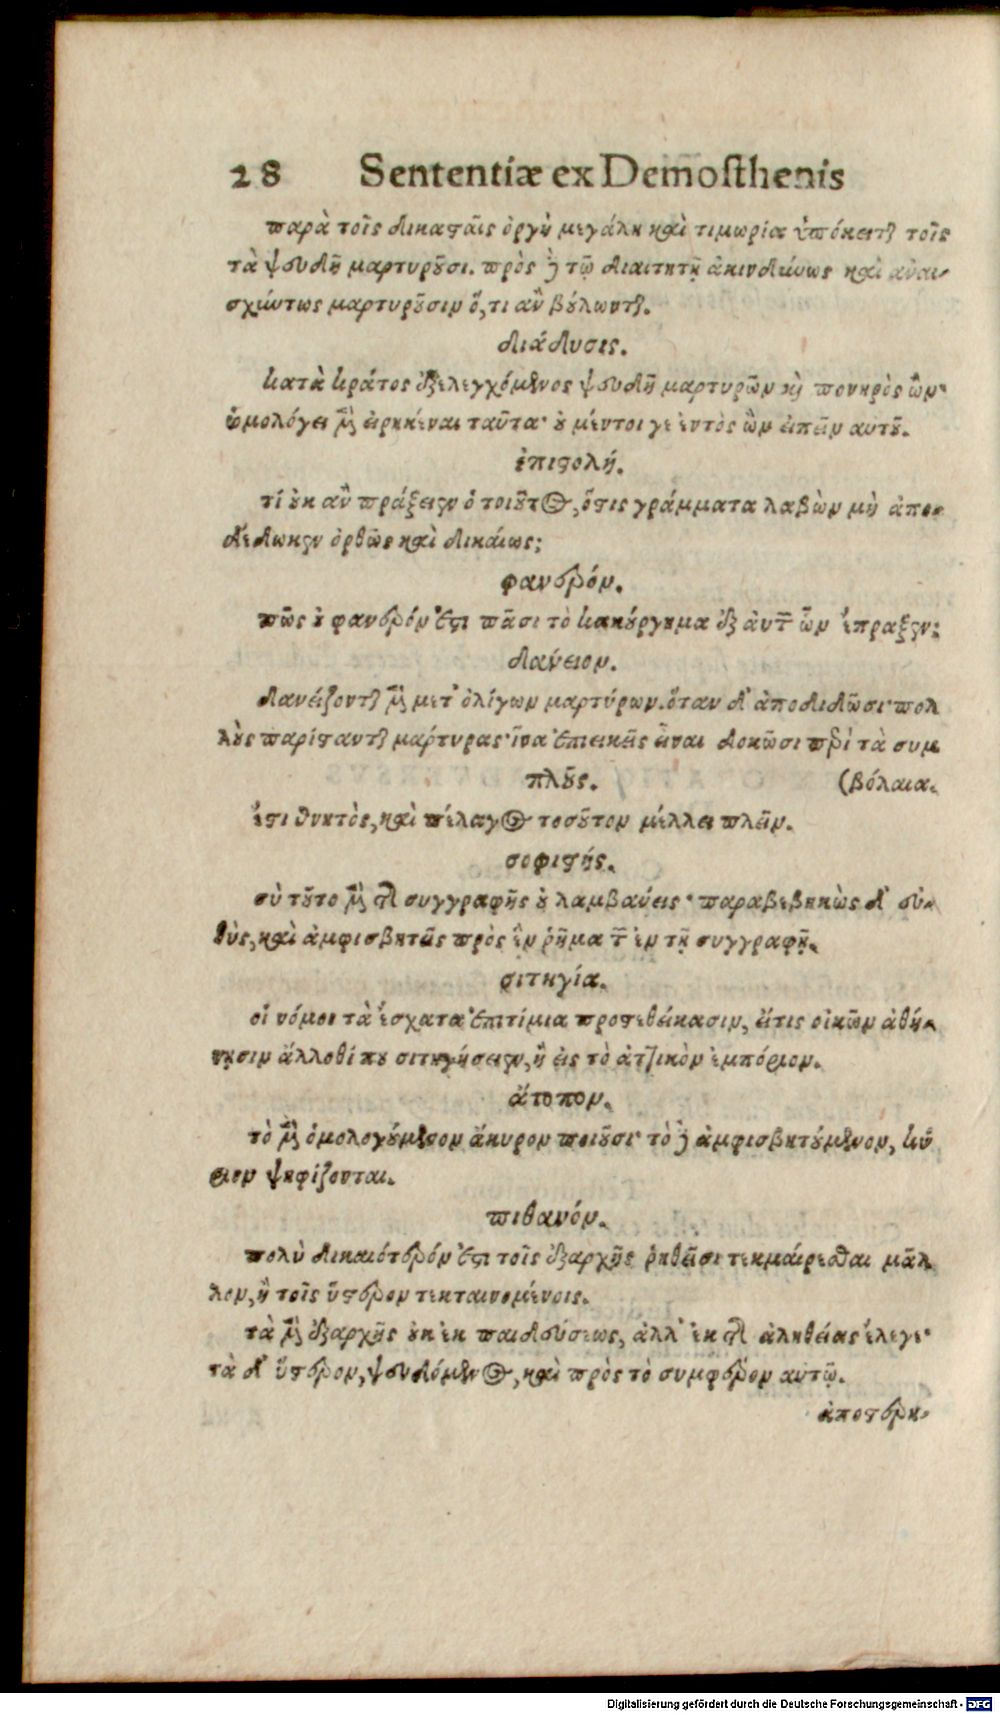 28 Sententiæ ex Demosthenis
παρὰ τοῖς δικασταῖς ὀργὴ μεγάλη καὶ τιμωρία ὑπόκειται τοῖς
τὰ ψευδῆ μαρτυροῦσι. πρὸς δὲ τῷ διαιτητῇ ἀκινδύνως καὶ ἀναι-
σχύντως μαρτυροῦσιν ὅ, τι ἂν βούλωνται.
διάλυσις.
κατὰ κράτος ἐξελεγχόμενος ψευδῆ μαρτυρῶν καὶ πονηρὸς ὢν·
ὡμολόγει μὲν εἰρηκέναι ταῦτα· οὐ μέντοι γε ἐντὸς ὢν εἰπεῖν αὐτοῦ.
ἐπιστολή.
τί οὐκ ἂν πράξειεν ὁ τοιοῦτος, ὅστις γράμματα λαβὼν μὴ ἀπο-
δέδωκεν ὀρθῶς καὶ δικαίως;
φανερόν.
πῶς οὐ φανερόν ἐστι πᾶσι τὸ κακούργημα ἐξ αὐτῶν ὧν ἔπραξεν;
δάνειον.
δανείζονται μὲν μετ' ὀλίγων μαρτύρων. ὅταν δ' ἀποδιδῶσι· πολ
λοὺς παρίστανται μάρτυρας· ἵνα ἐπιεικεῖς εἶναι δοκῶσι περὶ τὰ συμ
πλοῦς. (βόλαια.
ἔστι θνητὸς, καὶ πέλαγος τοσοῦτον μέλλει πλεῖν.
σοφιστής.
σὺ τοῦτο μὲν τῆς συγγραφῆς οὐ λαμβάνεις· παραβεβηκὼς δ' εὐ-
θὺς, καὶ ἀμφισβητεῖς πρὸς ἓν ῥῆμα τῶν ἐν τῇ συγγραφῇ.
σιτηγία.
οἱ νόμοι τὰ ἔσχατα ἐπιτίμια προστεθείκασιν, εἴτις οἰκῶν ἀθή-
νησιν ἄλλοθί που σιτηγήσειεν, ἢ εἰς τὸ ἀττικὸν ἐμπόριον.
ἄτοπον.
τὸ μὲν ὁμολογούμενον ἄκυρον ποιοῦσι· τὸ δὲ ἀμφισβητούμενον, κύ
ριον ψηφίζονται.
πιθανόν.
πολὺ δικαιότερόν ἐστι τοῖς ἐξαρχῆς ῥηθεῖσι τεκμαίρεσθαι μᾶλ
λον, ἢ τοῖς ὕστερον τεκταινομένοις.
τὰ μὲν ἐξαρχῆς οὐκ ἐκ παιδεύσεως, ἀλλ' ἐκ τῆς ἀληθείας ἔλεγε·
τὰ δ' ὕστερον, ψευδόμενος, καὶ πρὸς τὸ συμφέρον αὐτῷ.
ἀποστερη-
Digitalisierung gefördert durch die Deutsche Forschungsgemeinschaft - DFG